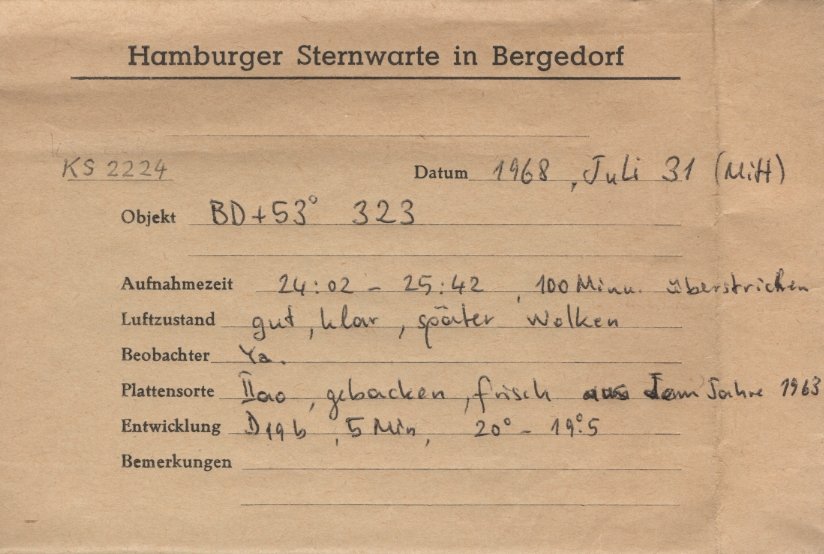 Hamburger Sternwarte in Bergedorf
KS 2224 Datum 1968, Juli 31 (Mitt)
Objekt BD+53° 323
Aufnahmezeit 24:02 - 25:42, 100 Minu. überstrichen
Luftzustand gut, klar, später Wolken
Beobachter Ya.
Plattensorte IIao, gebacken, frisch aus dem Jahre 1963
Entwicklung D19b, 5 Min, 20° - 19°.5
Bemerkungen